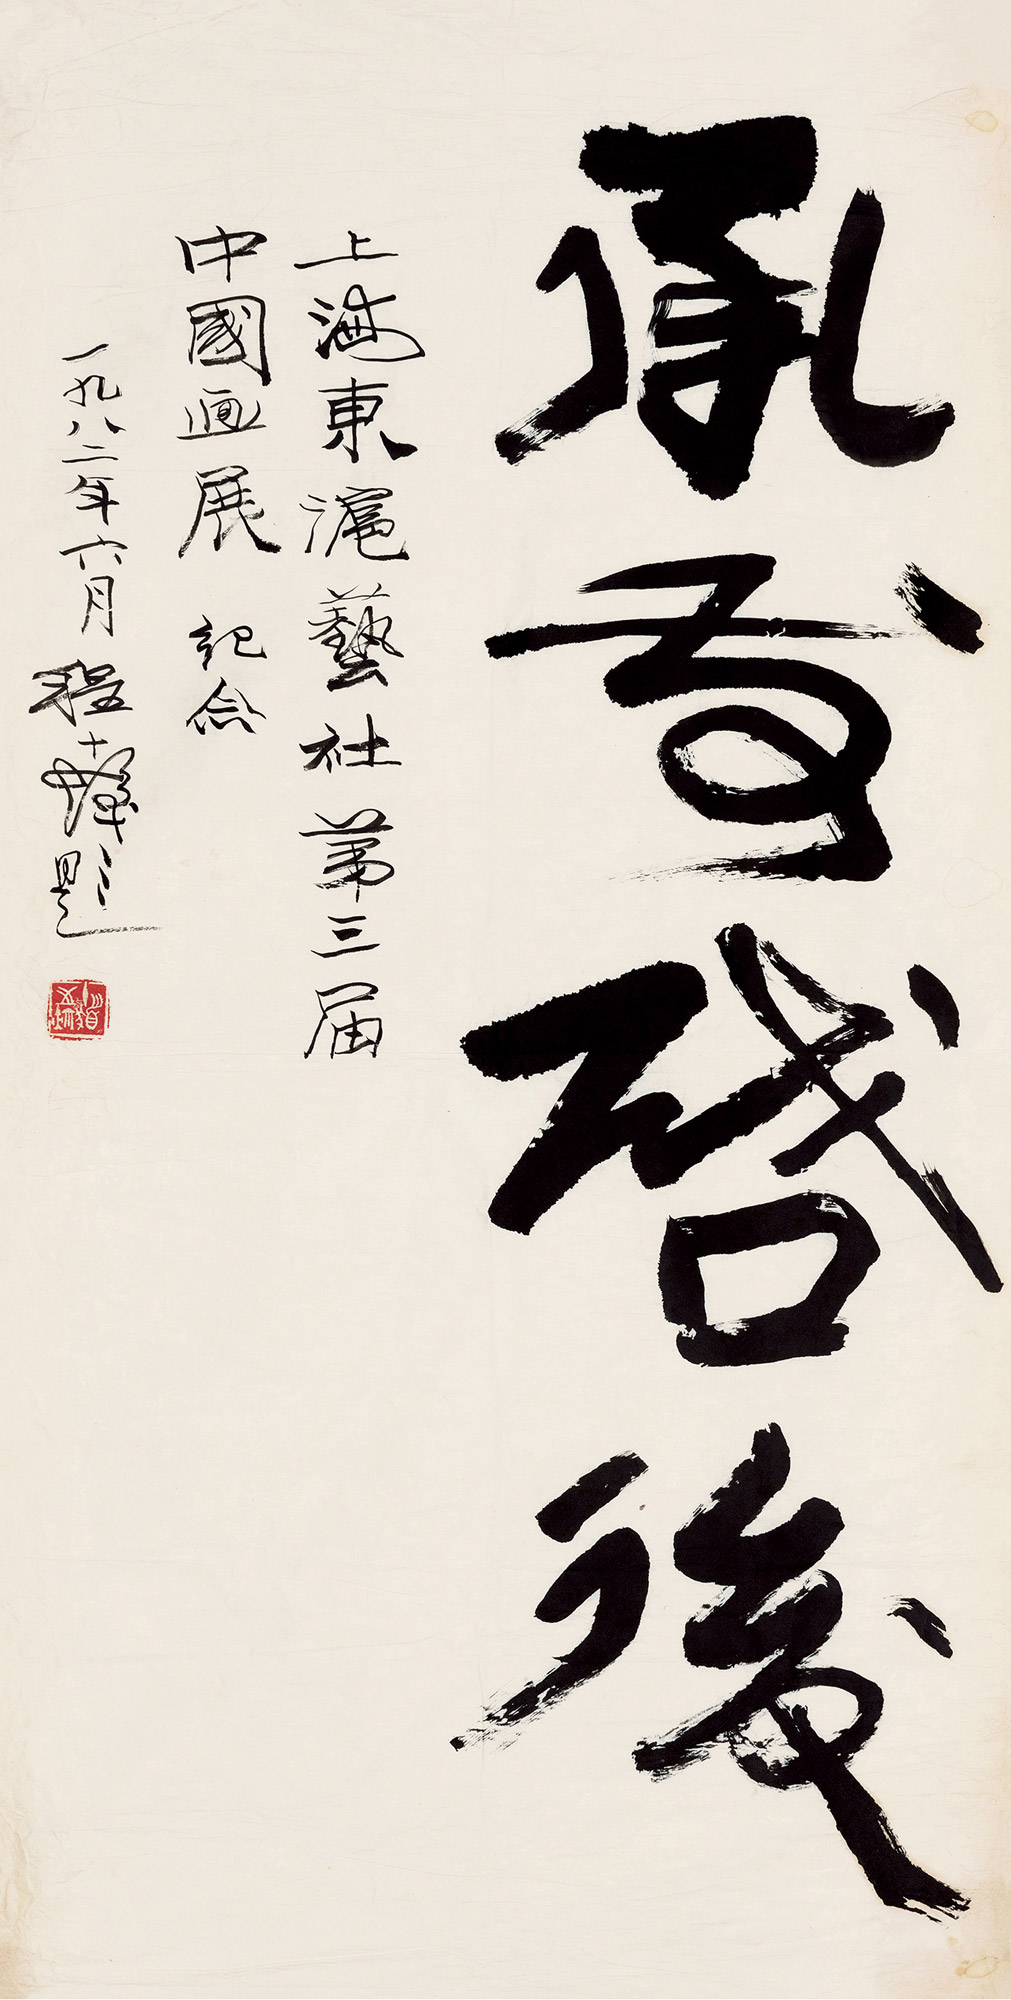 承前啓後
上海東滬藝社第三届
中國画展 紀念
一九八二年六月
程十髮題